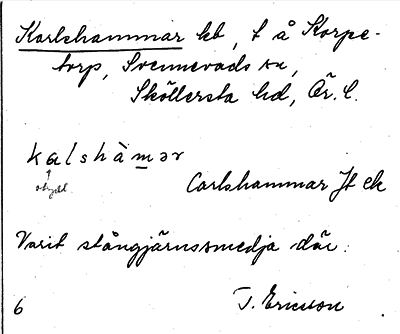 Karlshammar hb, t å Skorpe-
torp, Svennevads sn,
Sköllersta hd, Ör. l.
kalshàmər
otydl
Carlshammar Jt ek
Varit stångjärnssmedja där.
6 T. Ericsson